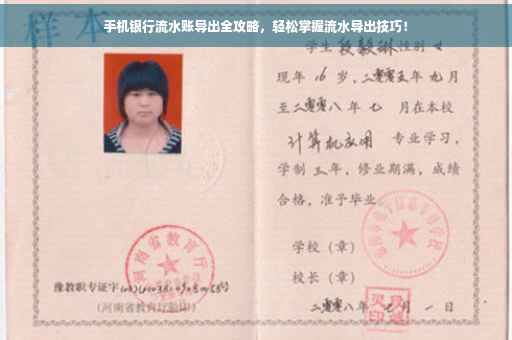 手机银行流水账导出全攻略，轻松掌握流水导出技巧！
样本
学生段毅琳性别女
现年16岁，二零零五年九月
至二零零八年七月在本校
计算机应用专业学习，
学制三年，修业期满，成绩
合格，准予毕业
学校（章）
校长（章）
二零零八年七月一日
豫教职专证字
（河南省教育厅验印）
河南省教育厅